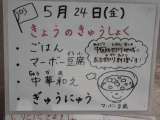 5月24日(金)
きょうのきゅうしょく
・ごはん
・マーボー豆腐
ちゅうか あ
・中華和え
・ぎゅうにゅう
マーボー豆腐